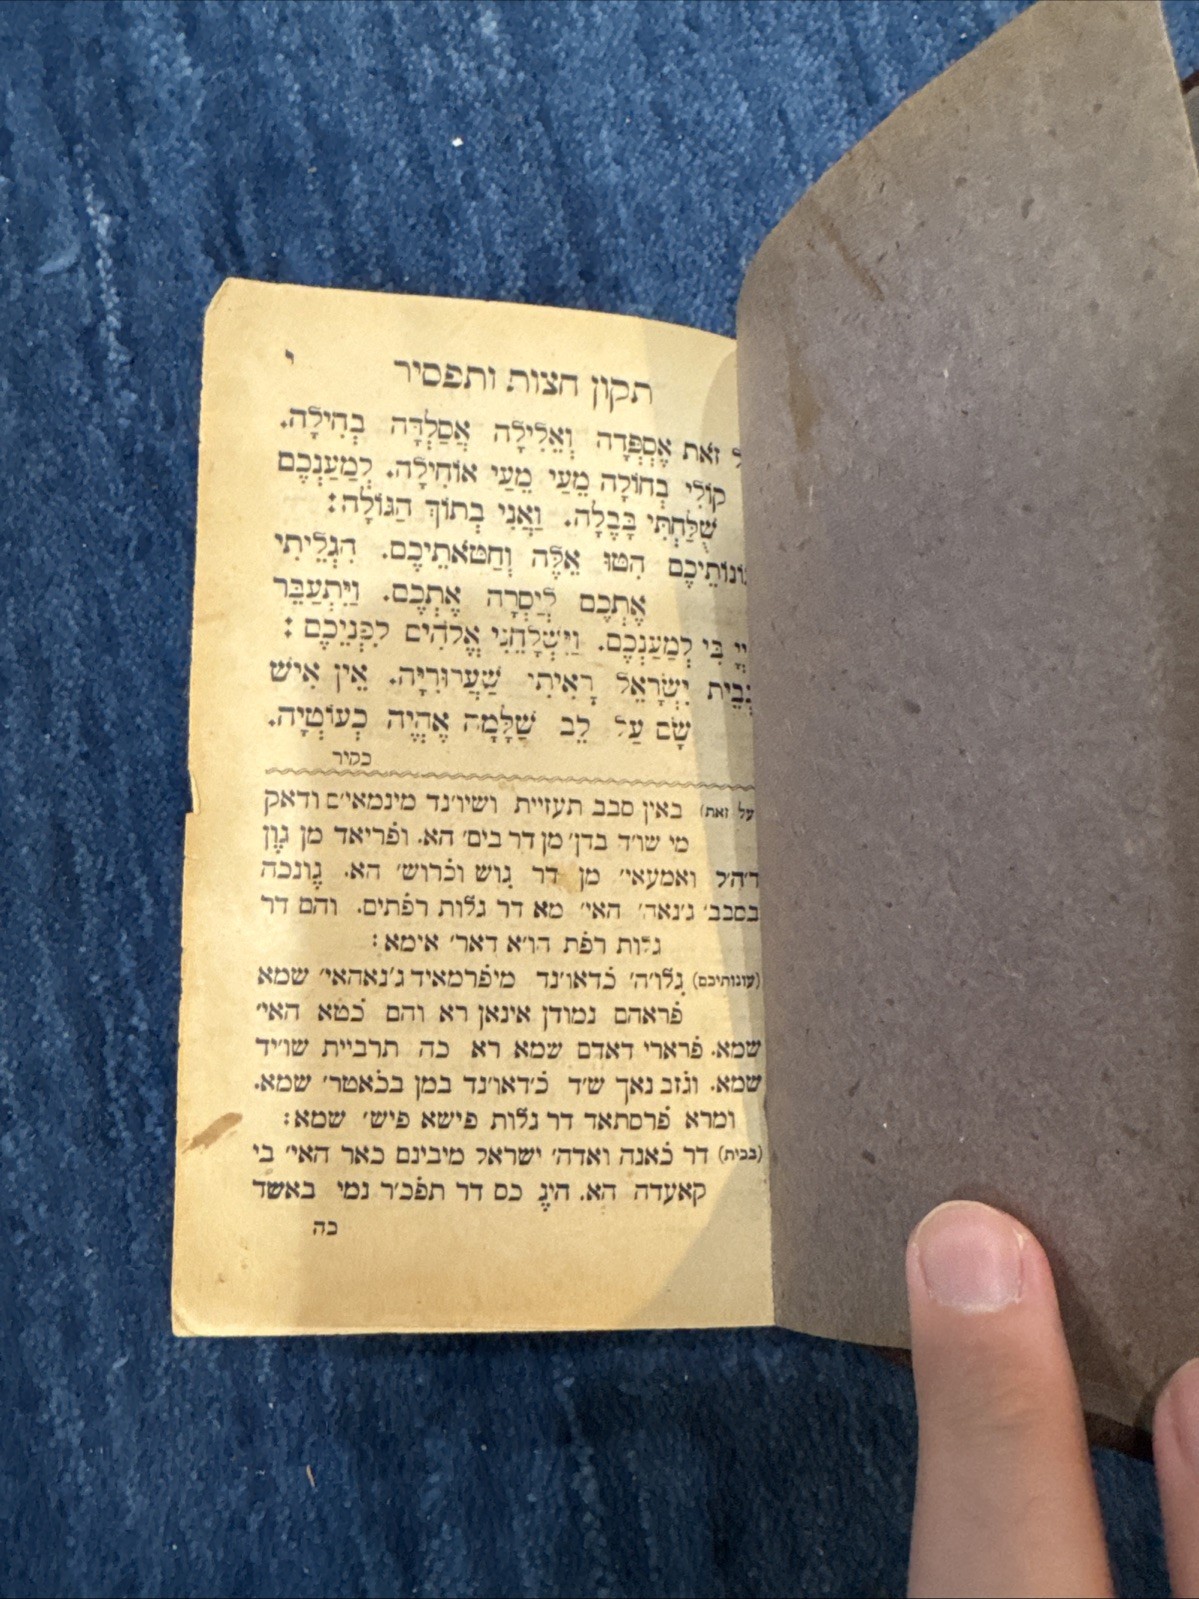 תקון חצות ותפסיר
י
ל זֹאת אֶסְפְּדָה וְאֵלִילָה אֲסַלְּדָה בְּחִילָה.
קוֹלִי בְּחוֹלָה מֵעַי מֵעַי אוֹחִילָה. לְמַעַנְכֶם
שֻׁלַּחְתִּי בָּבֶלָה. וַאֲנִי בְתוֹךְ הַגּוֹלָה:
ונוֹתֵיכֶם הִטּוּ אֵלֶּה וְחַטֹּאתֵיכֶם. הִגְלֵיתִי
אֶתְכֶם לְיַסְּרָה אֶתְכֶם. וַיִּתְעַבֵּר
יְיָ בִּי לְמַעַנְכֶם. וַיִּשְׁלָחֵנִי אֱלֹהִים לִפְנֵיכֶם:
בְּבֵית יִשְׂרָאֵל רָאִיתִי שַׁעֲרוּרִיָּה. אֵין אִישׁ
שָׂם עַל לֵב שַׁלָּמָה אֶהְיֶה כְּעוֹטְיָה.
כקיר
(על זאת) באין סבב תעזיית ושיו׳נד מינמאי״ם ודאק
מי שו׳ד בדן׳ מן דר בים׳ הא. ופֿריאד מן גֿוֶן
ד׳ה׳ל ואמעאי׳ מן דר גוש וכֿרוש׳ הא. גֶונכה
בסבב׳ ג׳נאה׳ האי׳ מא דר גלות רפֿתים. והם דר
גלות רפֿת הו׳א דאר׳ אימא:
(עונותיכם) גָלו׳ה׳ כֿדאו׳נד מיפֿרמאיד ג׳נאהאי׳ שמא
פֿראהם נמודן אינאן רא והם כֿטא האי׳
שמא. פֿרארי דאדם שמא רא כה תרביית שו׳יד
שמא. וגֿזב נאך ש׳ד כֿ׳דאו׳נד במן בכֿאטר׳ שמא.
ומרא פֿרסתאד דר גלות פישא פיש׳ שמא:
(בבית) דר כֿאנה ואדה׳ ישראל מיבינם כאר האי׳ בי
קאעדה הא. היגֶ כס דר תפֿכ׳ר נמי באשד
כה